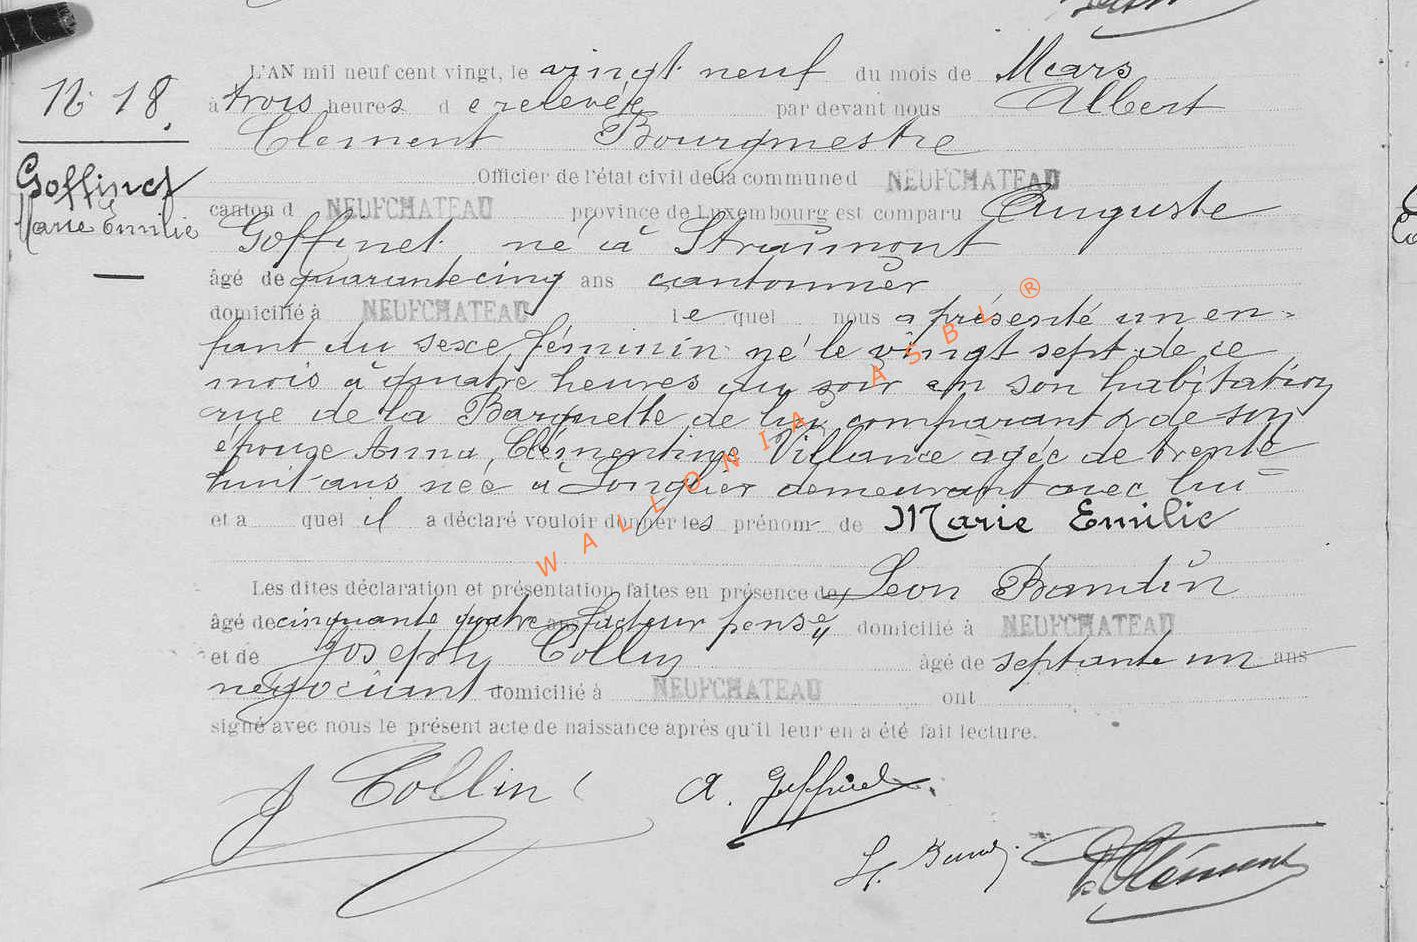 N° 18.
Goffinet
Marie Emilie
L'AN mil neuf cent vingt, le vingt neuf du mois de Mars
à trois heures de relevée par devant nous Albert
Clement Bourgmestre
Officier de l'état civil de la commune d NEUFCHATEAU
canton d NEUFCHATEAU province de Luxembourg est comparu Auguste
Goffinet né à Straimont
âgé de quarante cinq ans cantonnier
domicilié à NEUFCHATEAU lequel nous a présenté un en-
fant du sexe féminin né le vingt sept de ce
mois à quatre heures du soir en son habitation
rue de la Barquette de lui comparant & de son
épouse Anna, Clémentine Villance agée de trente
huit ans née à Longlier demeurant avec lui
et a quel il a déclaré vouloir donner les prénom de Marie Emilie
Les dites déclaration et présentation faites en présence de Léon
âgé de cinquante quatre ans facteur pensé domicilié à NEUFCHATEAU
et de Joseph Collin âgé de septante un ans
négociant domicilié à NEUFCHATEAU ont
signé avec nous le présent acte de naissance après qu'il leur en a été fait lecture.
J Collin A. Goffinet
A Clément
WALLONIA ASBL ®